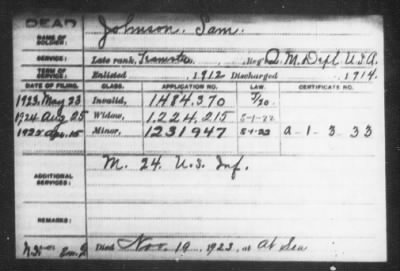 DEAD
NAME OF SOLDIER: Johnson, Sam.
SERVICE: Late rank, Teamster Reg't Q. M. Dept. U.S.A.
TERM OF SERVICE: Enlisted 1912 Discharged 1914.
DATE OF FILING. CLASS. APPLICATION NO. LAW. CERTIFICATE NO.
1923, May 23 Invalid, 1,484,370
1924 Aug 25 Widow, 1,224,215 5-1-22
1925 Apr. 15 Minor, 1231947 5-1-22 A-1-3-33
ADDITIONAL SERVICES: M. 24. U.S. Inf.
REMARKS:
Died Nov. 19, 1923, at At Sea